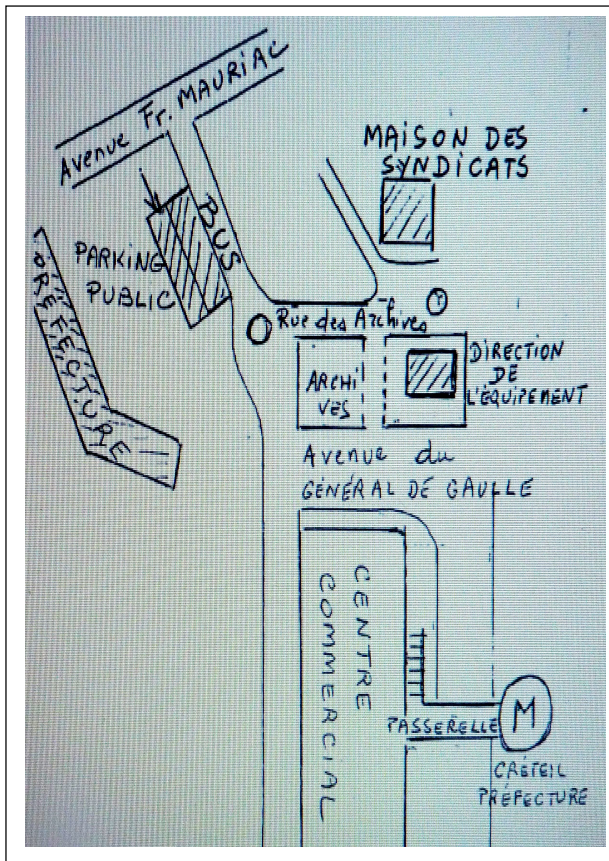 Avenue Fr. MAURIAC
MAISON DES
SYNDICATS
BUS
PARKING
PUBLIC
PRÉFECTURE
Rue des Archives
ARCHI
VES
DIRECTION
DE
L'ÉQUIPEMENT
Avenue du
GÉNÉRAL DE GAULLE
CENTRE
COMMERCIAL
PASSERELLE
M
CRÉTEIL
PRÉFECTURE